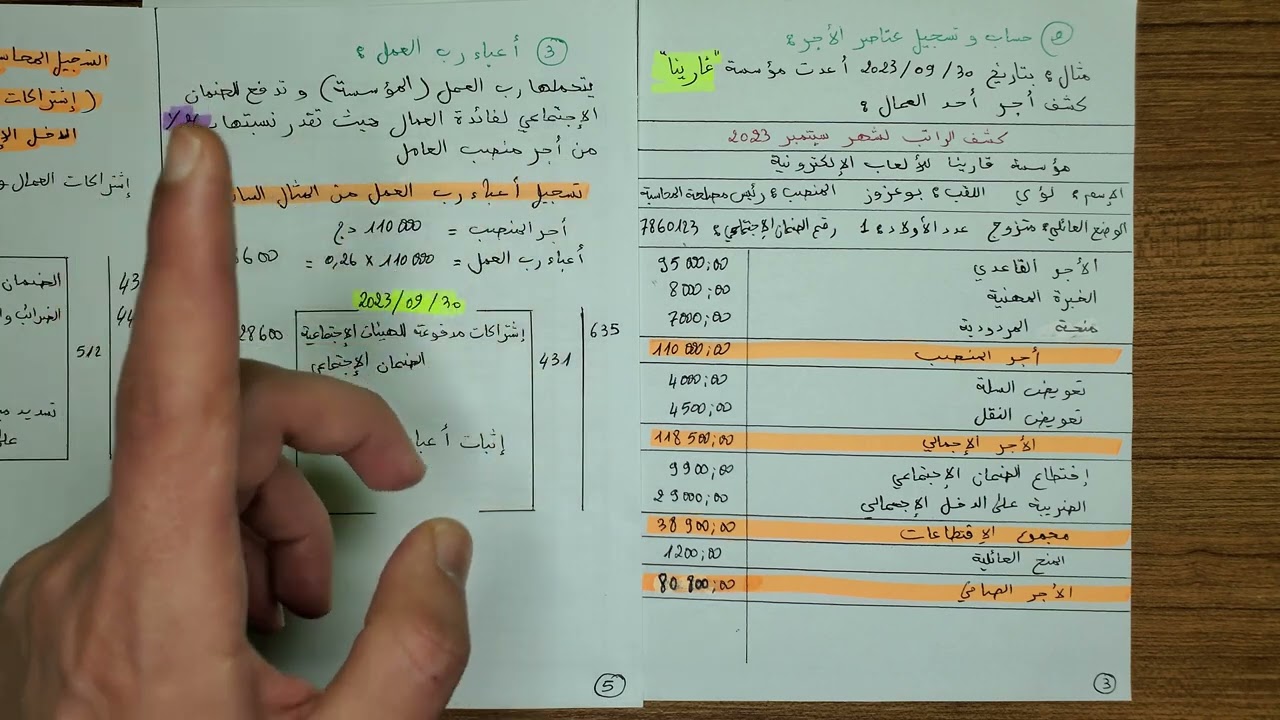 ② حساب و تسجيل عناصر الأجر :
مثال : بتاريخ 30/09/2023 أعدت مؤسسة "غارينا"
كشف أجر أحد العمال :
كشف الراتب لشهر سبتمبر 2023
مؤسسة غارينا للألعاب الإلكترونية
الإسم : لؤي اللقب : بوعزوز المنصب : رئيس مصلحة المحاسبة
الوضع العائلي : متزوج عدد الأولاد : 1 رقم الضمان الإجتماعي : 7860123
الأجر القاعدي 95000,00
الخبرة المهنية 8000,00
منحة المردودية 7000,00
أجر المنصب 110000,00
تعويض السلة 4000,00
تعويض النقل 4500,00
الأجر الإجمالي 118500,00
إقتطاع الضمان الإجتماعي 9900,00
الضريبة على الدخل الإجمالي 29000,00
مجموع الإقتطاعات 38900,00
المنح العائلية 1200,00
الأجر الصافي 80800,00
3
③ أعباء رب العمل :
يتحملها رب العمل (المؤسسة) و تدفع للضمان
الإجتماعي لفائدة العمال حيث تقدر نسبتها
من أجر منصب العامل
تسجيل أعباء رب العمل من المثال
أجر المنصب = 110000 دج
أعباء رب العمل = 110000 × 0,26 =
30/09/2023
635 إشتراكات مدفوعة للهيئات الإجتماعية 28600
431 الضمان الإجتماعي
إثبات
5
التسجيل
(إشتراكات
الدخل
إشتراكات العمال
الضمان
512
تسديد